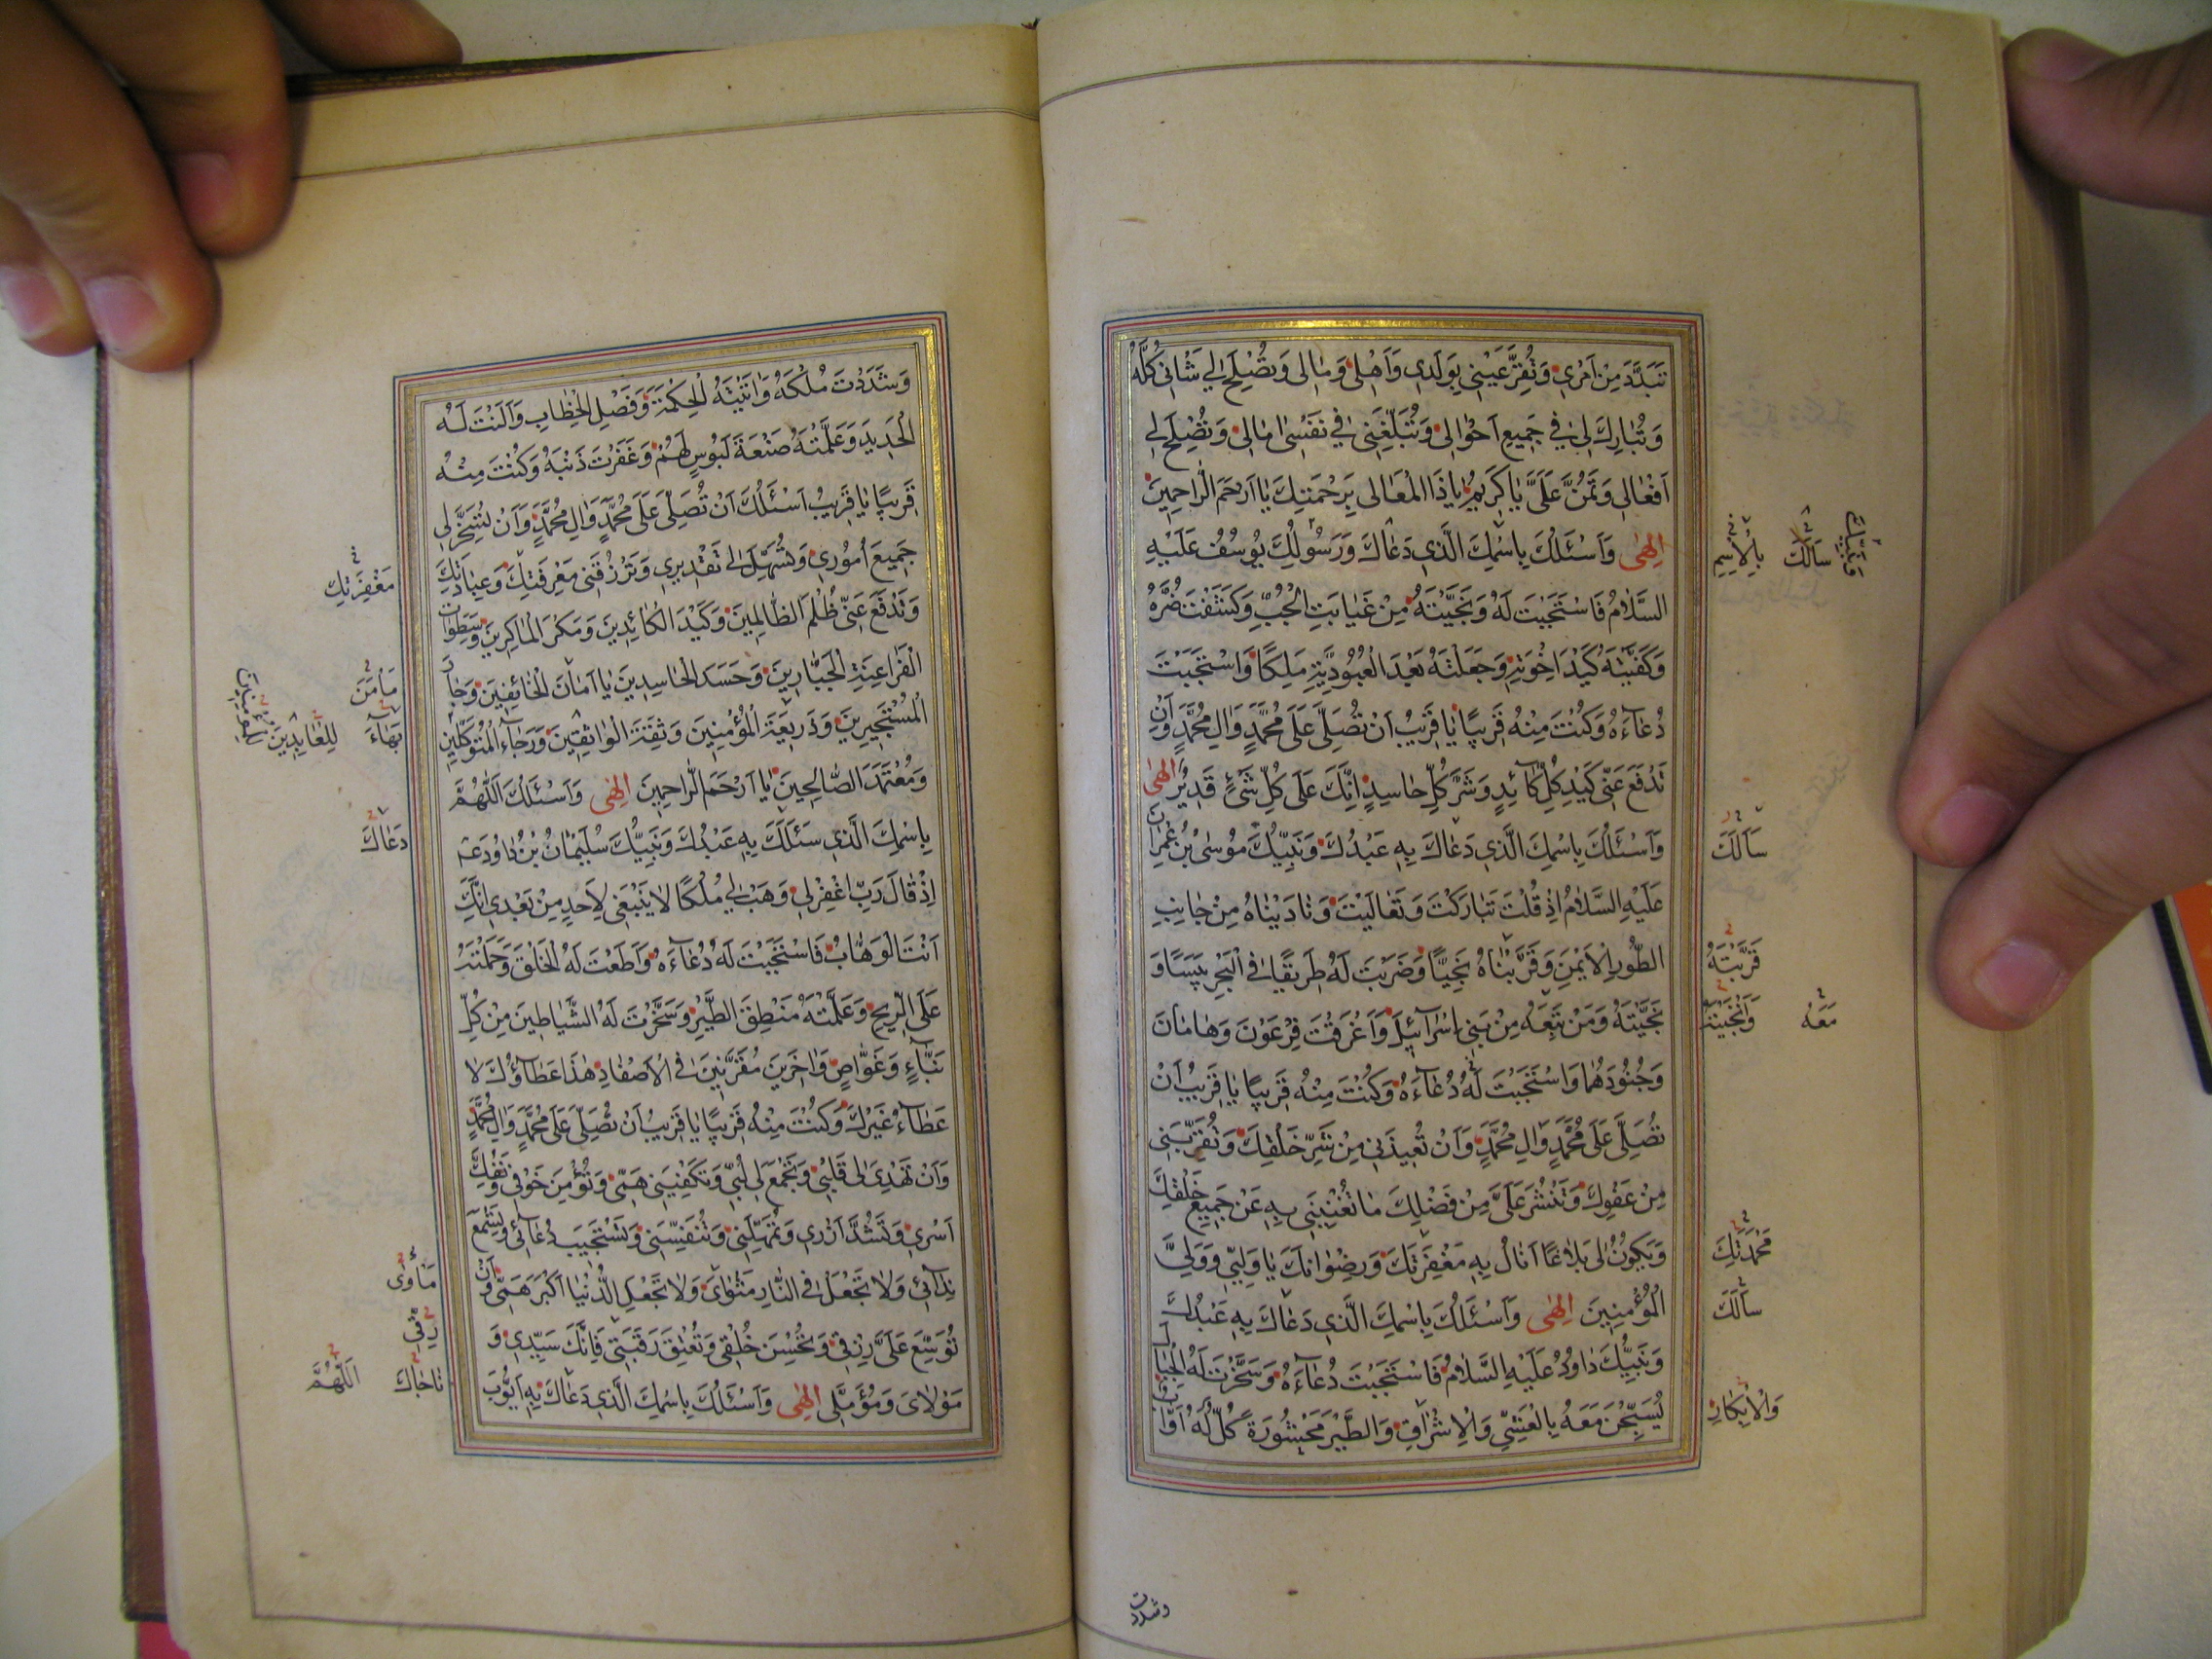 تَبَدَّدَ مِنْ اَمْرِي وَتُقِرَّ عَيْنِي بِوَلَدِي وَاَهْلِي وَمٰالِي وَتُصْلِحَ لِي شَانِي كُلَّهُ
وَتُبٰارِكَ لِي فِي جَمِيعِ اَحْوٰالِي وَتُبَلِّغَنِي فِي نَفْسِي اٰمٰالِي وَتُصْلِحَ لِي
اَفْعٰالِي وَتَمُنَّ عَلَيَّ يٰا كَرِيمُ يٰا ذَا الْمَعٰالِي بِرَحْمَتِكَ يٰا اَرْحَمَ الرّٰاحِمِينَ
اِلٰهِي وَاَسْئَلُكَ بِاسْمِكَ الَّذِي دَعٰاكَ وَرَسُولُكَ يُوسُفُ عَلَيْهِ
السَّلٰامُ فَاسْتَجَبْتَ لَهُ وَنَجَّيْتَهُ مِنْ غَيٰابَتِ الْجُبِّ وَكَشَفْتَ ضُرَّهُ
وَكَفَيْتَهُ كَيْدَ اِخْوَتِهِ وَجَعَلْتَهُ بَعْدَ الْعُبُودِيَّةِ مَلِكًا وَاسْتَجَبْتَ
دُعٰاءَهُ وَكُنْتَ مِنْهُ قَرِيبًا يٰا قَرِيبُ اَنْ تُصَلِّيَ عَلَى مُحَمَّدٍ وَاٰلِ مُحَمَّدٍ وَاَنْ
تَدْفَعَ عَنِّي كَيْدَ كُلِّ كٰائِدٍ وَشَرَّ كُلِّ حٰاسِدٍ اِنَّكَ عَلَى كُلِّ شَيْءٍ قَدِيرٌ اِلٰهِي
وَاَسْئَلُكَ بِاسْمِكَ الَّذِي دَعٰاكَ بِهِ عَبْدُكَ وَنَبِيُّكَ مُوسٰى بْنُ عِمْرٰانَ
عَلَيْهِ السَّلٰامُ اِذْ قُلْتَ تَبٰارَكْتَ وَتَعٰالَيْتَ وَنٰادَيْنٰاهُ مِنْ جٰانِبِ
الطُّورِ الْاَيْمَنِ وَقَرَّبْنٰاهُ نَجِيًّا وَضَرَبْتَ لَهُ طَرِيقًا فِي الْبَحْرِ يَبَسًا وَ
نَجَّيْتَهُ وَمَنْ تَبِعَهُ مِنْ بَنِي اِسْرٰائِيلَ وَاَغْرَقْتَ فِرْعَوْنَ وَهٰامٰانَ
وَجُنُودَهُمٰا وَاسْتَجَبْتَ لَهُ دُعٰاءَهُ وَكُنْتَ مِنْهُ قَرِيبًا يٰا قَرِيبُ اَنْ
تُصَلِّيَ عَلَى مُحَمَّدٍ وَاٰلِ مُحَمَّدٍ وَاَنْ تُعِيذَنِي مِنْ شَرِّ خَلْقِكَ وَتُقَرِّبَنِي
مِنْ عَفْوِكَ وَتَنْشُرَ عَلَيَّ مِنْ فَضْلِكَ مٰا تُغْنِيَنِي بِهِ عَنْ جَمِيعِ خَلْقِكَ
وَيَكُونُ لِي بَلٰاغًا اَنٰالُ بِهِ مَغْفِرَتَكَ وَرِضْوٰانَكَ يٰا وَلِيِّي وَوَلِيَّ
الْمُؤْمِنِينَ اِلٰهِي وَاَسْئَلُكَ بِاسْمِكَ الَّذِي دَعٰاكَ بِهِ عَبْدُكَ
وَنَبِيُّكَ دٰاوُدُ عَلَيْهِ السَّلٰامُ فَاسْتَجَبْتَ دُعٰاءَهُ وَسَخَّرْتَ لَهُ الْجِبٰالَ
يُسَبِّحْنَ مَعَهُ بِالْعَشِيِّ وَالْاِشْرٰاقِ وَالطَّيْرَ مَحْشُورَةً كُلٌّ لَهُ اَوّٰابٌ
بِالْاِسْمِ سَاَلَكَ
سَاَلَكَ
قَرَّبْتَهُ
وَاَنْجَيْتَهُ مَعَهُ
مَحْمَدَتِكَ
سَاَلَكَ
وَالْاِبْكَارِ
وشددت
وَشَدَدْتَ مُلْكَهُ وَاٰتَيْتَهُ الْحِكْمَةَ وَفَصْلَ الْخِطٰابِ وَاَلَنْتَ لَهُ
الْحَدِيدَ وَعَلَّمْتَهُ صَنْعَةَ لَبُوسٍ لَهُمْ وَغَفَرْتَ ذَنْبَهُ وَكُنْتَ مِنْهُ
قَرِيبًا يٰا قَرِيبُ اَسْئَلُكَ اَنْ تُصَلِّيَ عَلَى مُحَمَّدٍ وَاٰلِ مُحَمَّدٍ وَاَنْ تُسَخِّرَ لِي
جَمِيعَ اُمُورِي وَتُسَهِّلَ لِي تَقْدِيرِي وَتَرْزُقَنِي مَعْرِفَتَكَ وَعِبٰادَتَكَ
وَتَدْفَعَ عَنِّي ظُلْمَ الظّٰالِمِينَ وَكَيْدَ الْكٰائِدِينَ وَمَكْرَ الْمٰاكِرِينَ وَسَطَوٰاتِ
الْفَرٰاعِنَةِ الْجَبّٰارِينَ وَحَسَدَ الْحٰاسِدِينَ يٰا اَمٰانَ الْخٰائِفِينَ وَجٰارَ
الْمُسْتَجِيرِينَ وَذَرِيعَةَ الْمُؤْمِنِينَ وَثِقَةَ الْوٰاثِقِينَ وَرَجٰاءَ الْمُتَوَكِّلِينَ
وَمُعْتَمَدَ الصّٰالِحِينَ يٰا اَرْحَمَ الرّٰاحِمِينَ اِلٰهِي وَاَسْئَلُكَ اَللّٰهُمَّ
بِاسْمِكَ الَّذِي سَئَلَكَ بِهِ عَبْدُكَ وَنَبِيُّكَ سُلَيْمٰانُ بْنُ دٰاوُدَ ع
اِذْ قٰالَ رَبِّ اغْفِرْ لِي وَهَبْ لِي مُلْكًا لٰا يَنْبَغِي لِاَحَدٍ مِنْ بَعْدِي اِنَّكَ
اَنْتَ الْوَهّٰابُ فَاسْتَجَبْتَ لَهُ دُعٰاءَهُ وَاَطَعْتَ لَهُ الْخَلْقَ وَحَمَلْتَهُ
عَلَى الرِّيحِ وَعَلَّمْتَهُ مَنْطِقَ الطَّيْرِ وَسَخَّرْتَ لَهُ الشَّيٰاطِينَ مِنْ كُلِّ
بَنّٰاءٍ وَغَوّٰاصٍ وَاٰخَرِينَ مُقَرَّنِينَ فِي الْاَصْفٰادِ هٰذَا عَطٰاؤُكَ لٰا
عَطٰاءُ غَيْرِكَ وَكُنْتَ مِنْهُ قَرِيبًا يٰا قَرِيبُ اَنْ تُصَلِّيَ عَلَى مُحَمَّدٍ وَاٰلِ مُحَمَّدٍ
وَاَنْ تَهْدِيَ لِي قَلْبِي وَتَجْمَعَ لِي لُبِّي وَتَكْفِيَنِي هَمِّي وَتُؤْمِنَ خَوْفِي وَتَفُكَّ
اَسْرِي وَتَشُدَّ اَزْرِي وَتُمَهِّلَنِي وَتُنَفِّسَنِي وَتَسْتَجِيبَ دُعٰائِي وَتَسْمَعَ
نِدٰائِي وَلٰا تَجْعَلْ فِي النّٰارِ مَثْوٰايَ وَلٰا تَجْعَلِ الدُّنْيٰا اَكْبَرَ هَمِّي وَاَنْ
تُوَسِّعَ عَلَيَّ رِزْقِي وَتُحَسِّنَ خُلْقِي وَتُعْتِقَ رَقَبَتِي فَاِنَّكَ سَيِّدِي وَ
مَوْلٰايَ وَمُؤَمَّلِي اِلٰهِي وَاَسْئَلُكَ بِاسْمِكَ الَّذِي دَعٰاكَ بِهِ اَيُّوبُ
مَغْفِرَتِكَ
مَأْمَنَ
بَهٰاءَ لِلْعٰابِدِينَ لِلْمُؤْمِنِينَ
دَعٰاكَ
مَأْوٰى
رِقِّي
نٰاجٰاكَ اَللّٰهُمَّ